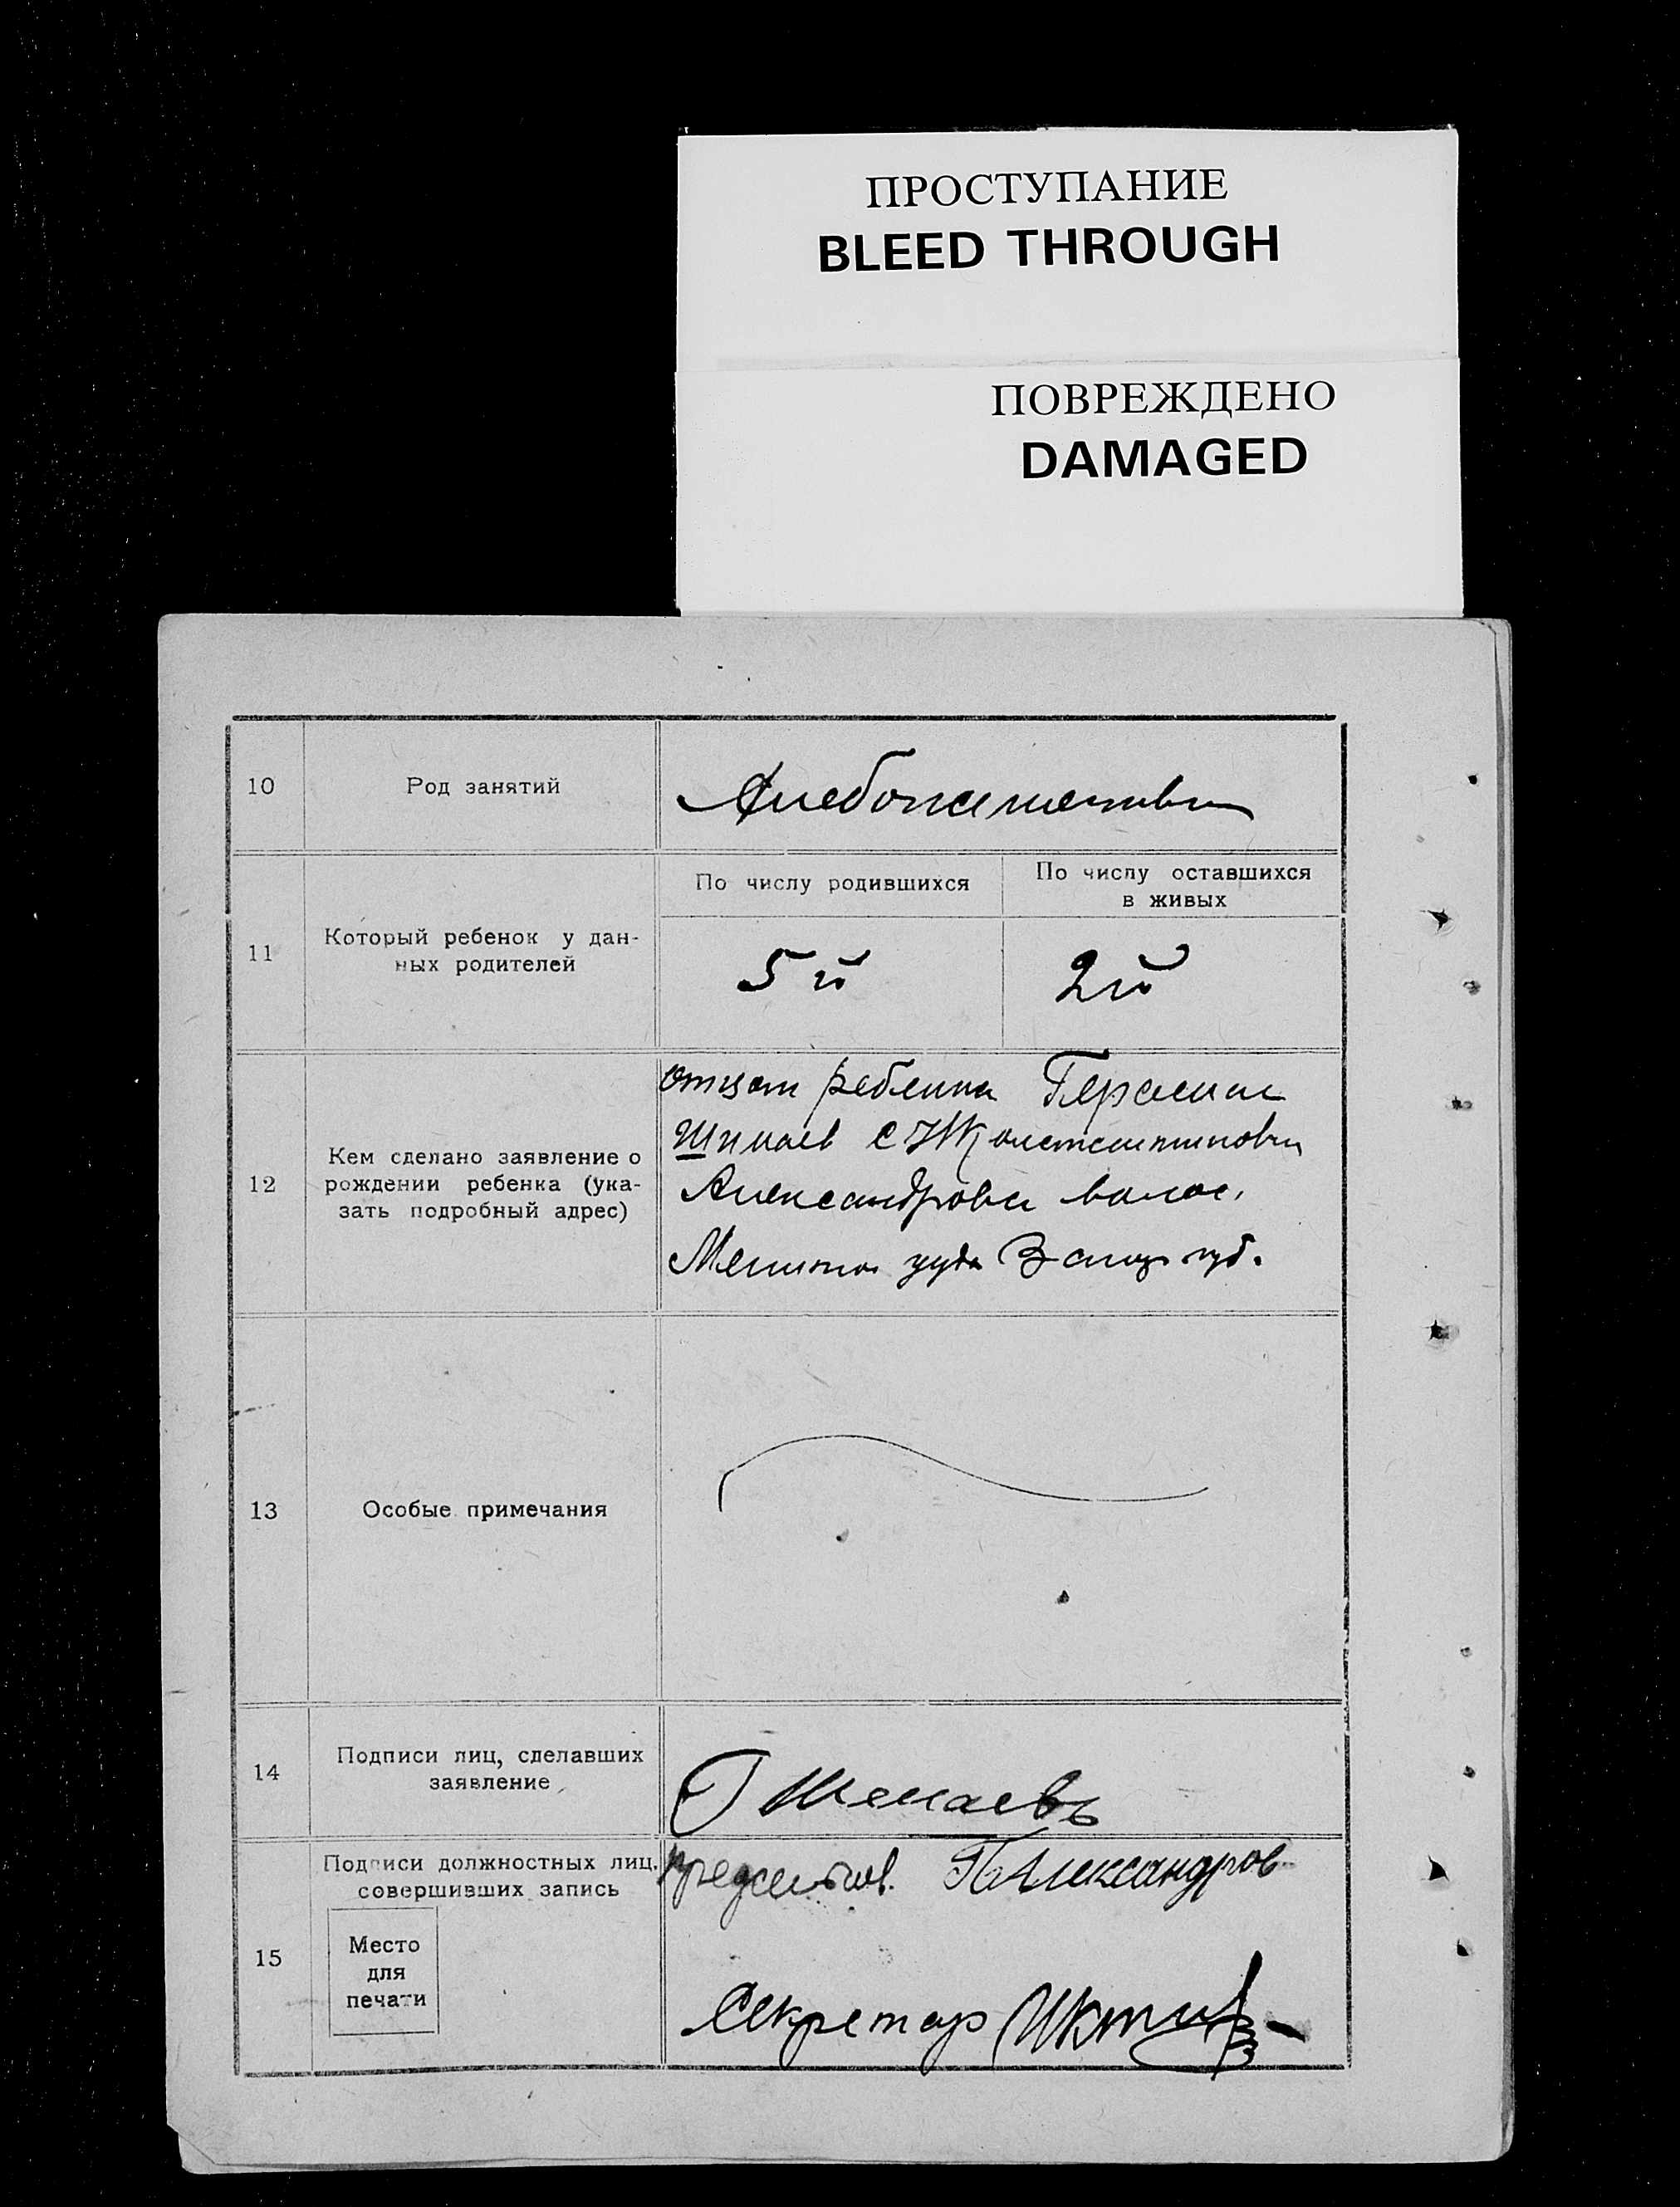 ПРОСТУПАНИЕ
BLEED THROUGH
ПОВРЕЖДЕНО
DAMAGED
10
Род занятий
11
Который ребенок у дан-
ных родителей
По числу родившихся
По числу оставшихся
в живых
5й
2й
12
Кем сделано заявление о
рождении ребенка (ука-
зать подробный адрес)
отцом ребенка Герасим
Шинаев с
Александровск волос.
уезда губ.
13
Особые примечания
14
Подписи лиц, сделавших
заявление
Г Шенаевъ
15
Подписи должностных лиц,
совершивших запись
Место
для
печати
Александров
Секретар